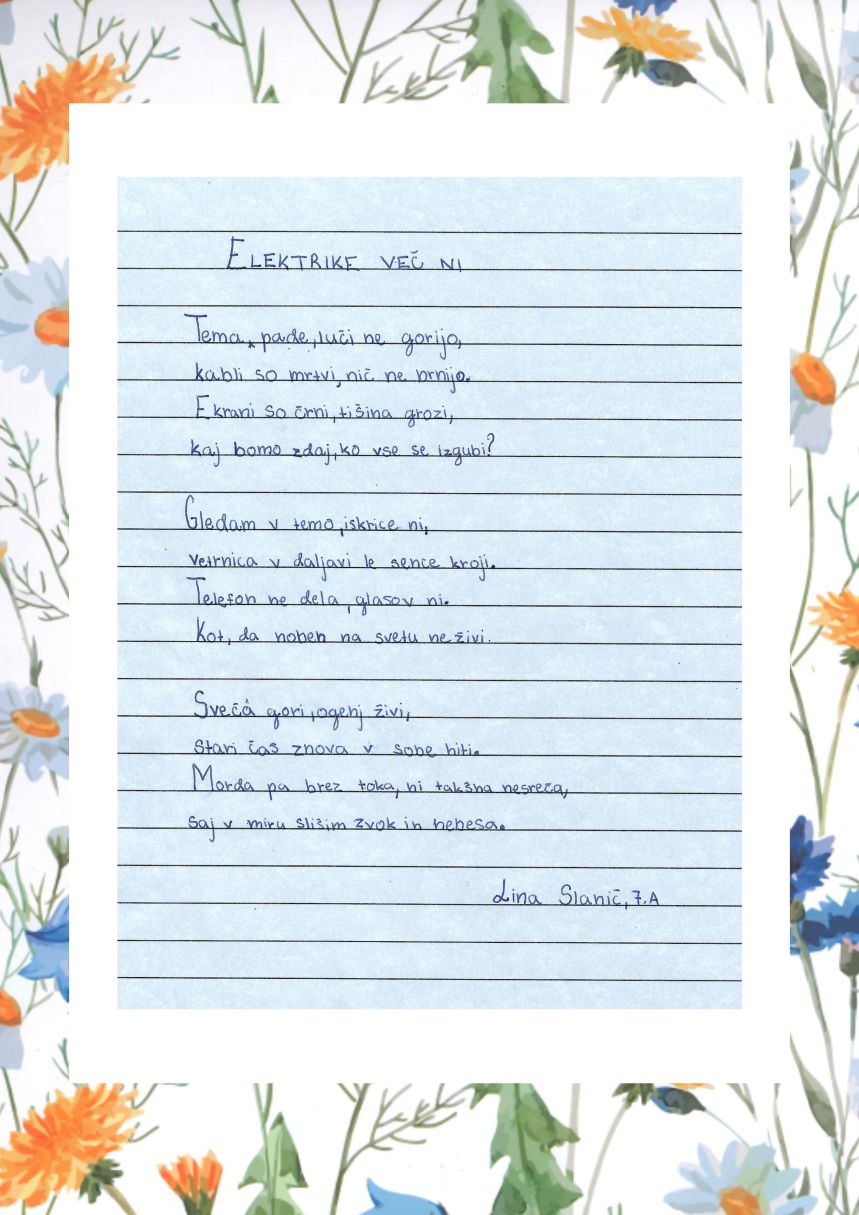 ELEKTRIKE VEČ NI
Tema, pade, luči ne gorijo,
kabli so mrtvi, nič ne brnijo.
Ekrani so črni, tišina grozi,
kaj bomo zdaj, ko vse se izgubi?
Gledam v temo, iskrice ni,
vetrnica v daljavi le sence kroji.
Telefon ne dela, glasov ni.
Kot, da noben na svetu ne živi.
Sveča gori, ogenj živi,
stari čas znova v sobe hiti.
Morda pa brez toka, ni takšna nesreča,
saj v miru slišim zvok in nebesa.
Lina Slanič, 7.A